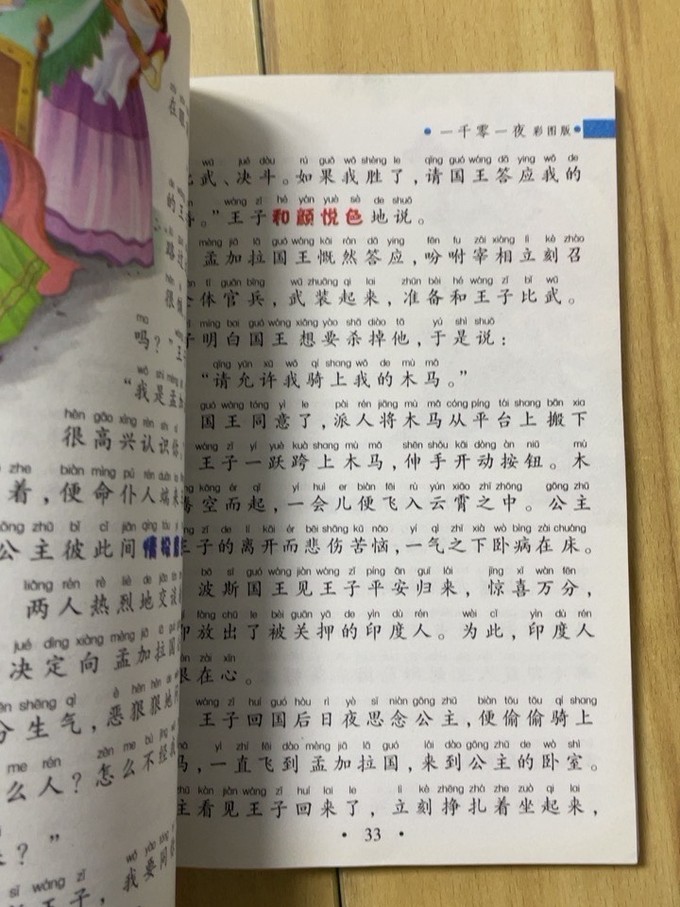 在
的王
路过
很
mā
吗？”王子
wǒ shì mèng
“我是孟加
hěn gāo xìng rèn shi
很高兴认识你
zhe biàn mìng pú rén duān
着，便命仆人端来
zhǔ bǐ cǐ jiān qíng
公主彼此间情投
liǎng rén rè liè de jiāo tán
两人热烈地交谈
jué dìng xiàng mèng jiā
决定向孟加拉国
shēng qì è hěn hěn
分生气，恶狠狠地
me rén zěn me bù jīng
么人？怎么不经
来？”
wǒ yào
我要同
sì wáng zǐ
一千零一夜 彩图版
wǔ jué dòu rú guǒ wǒ shèng le qǐng guó wáng dā ying wǒ de
比武、决斗。如果我胜了，请国王答应我的
wáng zǐ hé yán yuè sè de shuō
。”王子和颜悦色地说。
mèng jiā lā guó wáng kǎi rán dā ying fēn fù zǎi xiàng lì kè zhào
孟加拉国王慨然答应，吩咐宰相立刻召
tǐ guān bīng wǔ zhuāng qǐ lai zhǔn bèi hé wáng zǐ bǐ wǔ
全体官兵，武装起来，准备和王子比武。
zǐ míng bai guó wáng xiǎng yào shā diào tā yú shì shuō
子明白国王想要杀掉他，于是说：
qǐng yǔn xǔ wǒ qí shang wǒ de mù mǎ
“请允许我骑上我的木马。”
guó wáng tóng yì le pài rén jiāng mù mǎ cóng píng tái shang bān xia
国王同意了，派人将木马从平台上搬下
wáng zǐ yí yuè kuà shang mù mǎ shēn shǒu kāi dòng àn niǔ mù
王子一跃跨上木马，伸手开动按钮。木
téng kōng ér qǐ yí huì er biàn fēi rù yún xiāo zhī zhōng gōng zhǔ
腾空而起，一会儿便飞入云霄之中。公主
wáng zǐ de lí kāi ér bēi shāng kǔ nǎo yí qì zhī xià wò bìng zài chuáng
王子的离开而悲伤苦恼，一气之下卧病在床。
bō sī guó wáng jiàn wáng zǐ píng ān guī lái jīng xǐ wàn fēn
波斯国王见王子平安归来，惊喜万分，
fàng chū le bèi guān yā de yìn dù rén wèi cǐ yìn dù rén
即放出了被关押的印度人。为此，印度人
hèn zài xīn
恨在心。
wáng zǐ huí guó hòu rì yè sī niàn gōng zhǔ biàn tōu tōu qí shang
王子回国后日夜思念公主，便偷偷骑上
mǎ yì zhí fēi dào mèng jiā lā guó lái dào gōng zhǔ de wò shì
马，一直飞到孟加拉国，来到公主的卧室。
zhǔ kàn jiàn wáng zǐ huí lai le lì kè zhēng zhá zhe zuò qǐ lai
主看见王子回来了，立刻挣扎着坐起来，
33